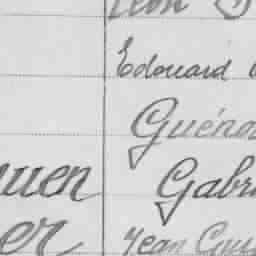 Léon
Edouard
Guéno
uen Gabri
er Jean Gui